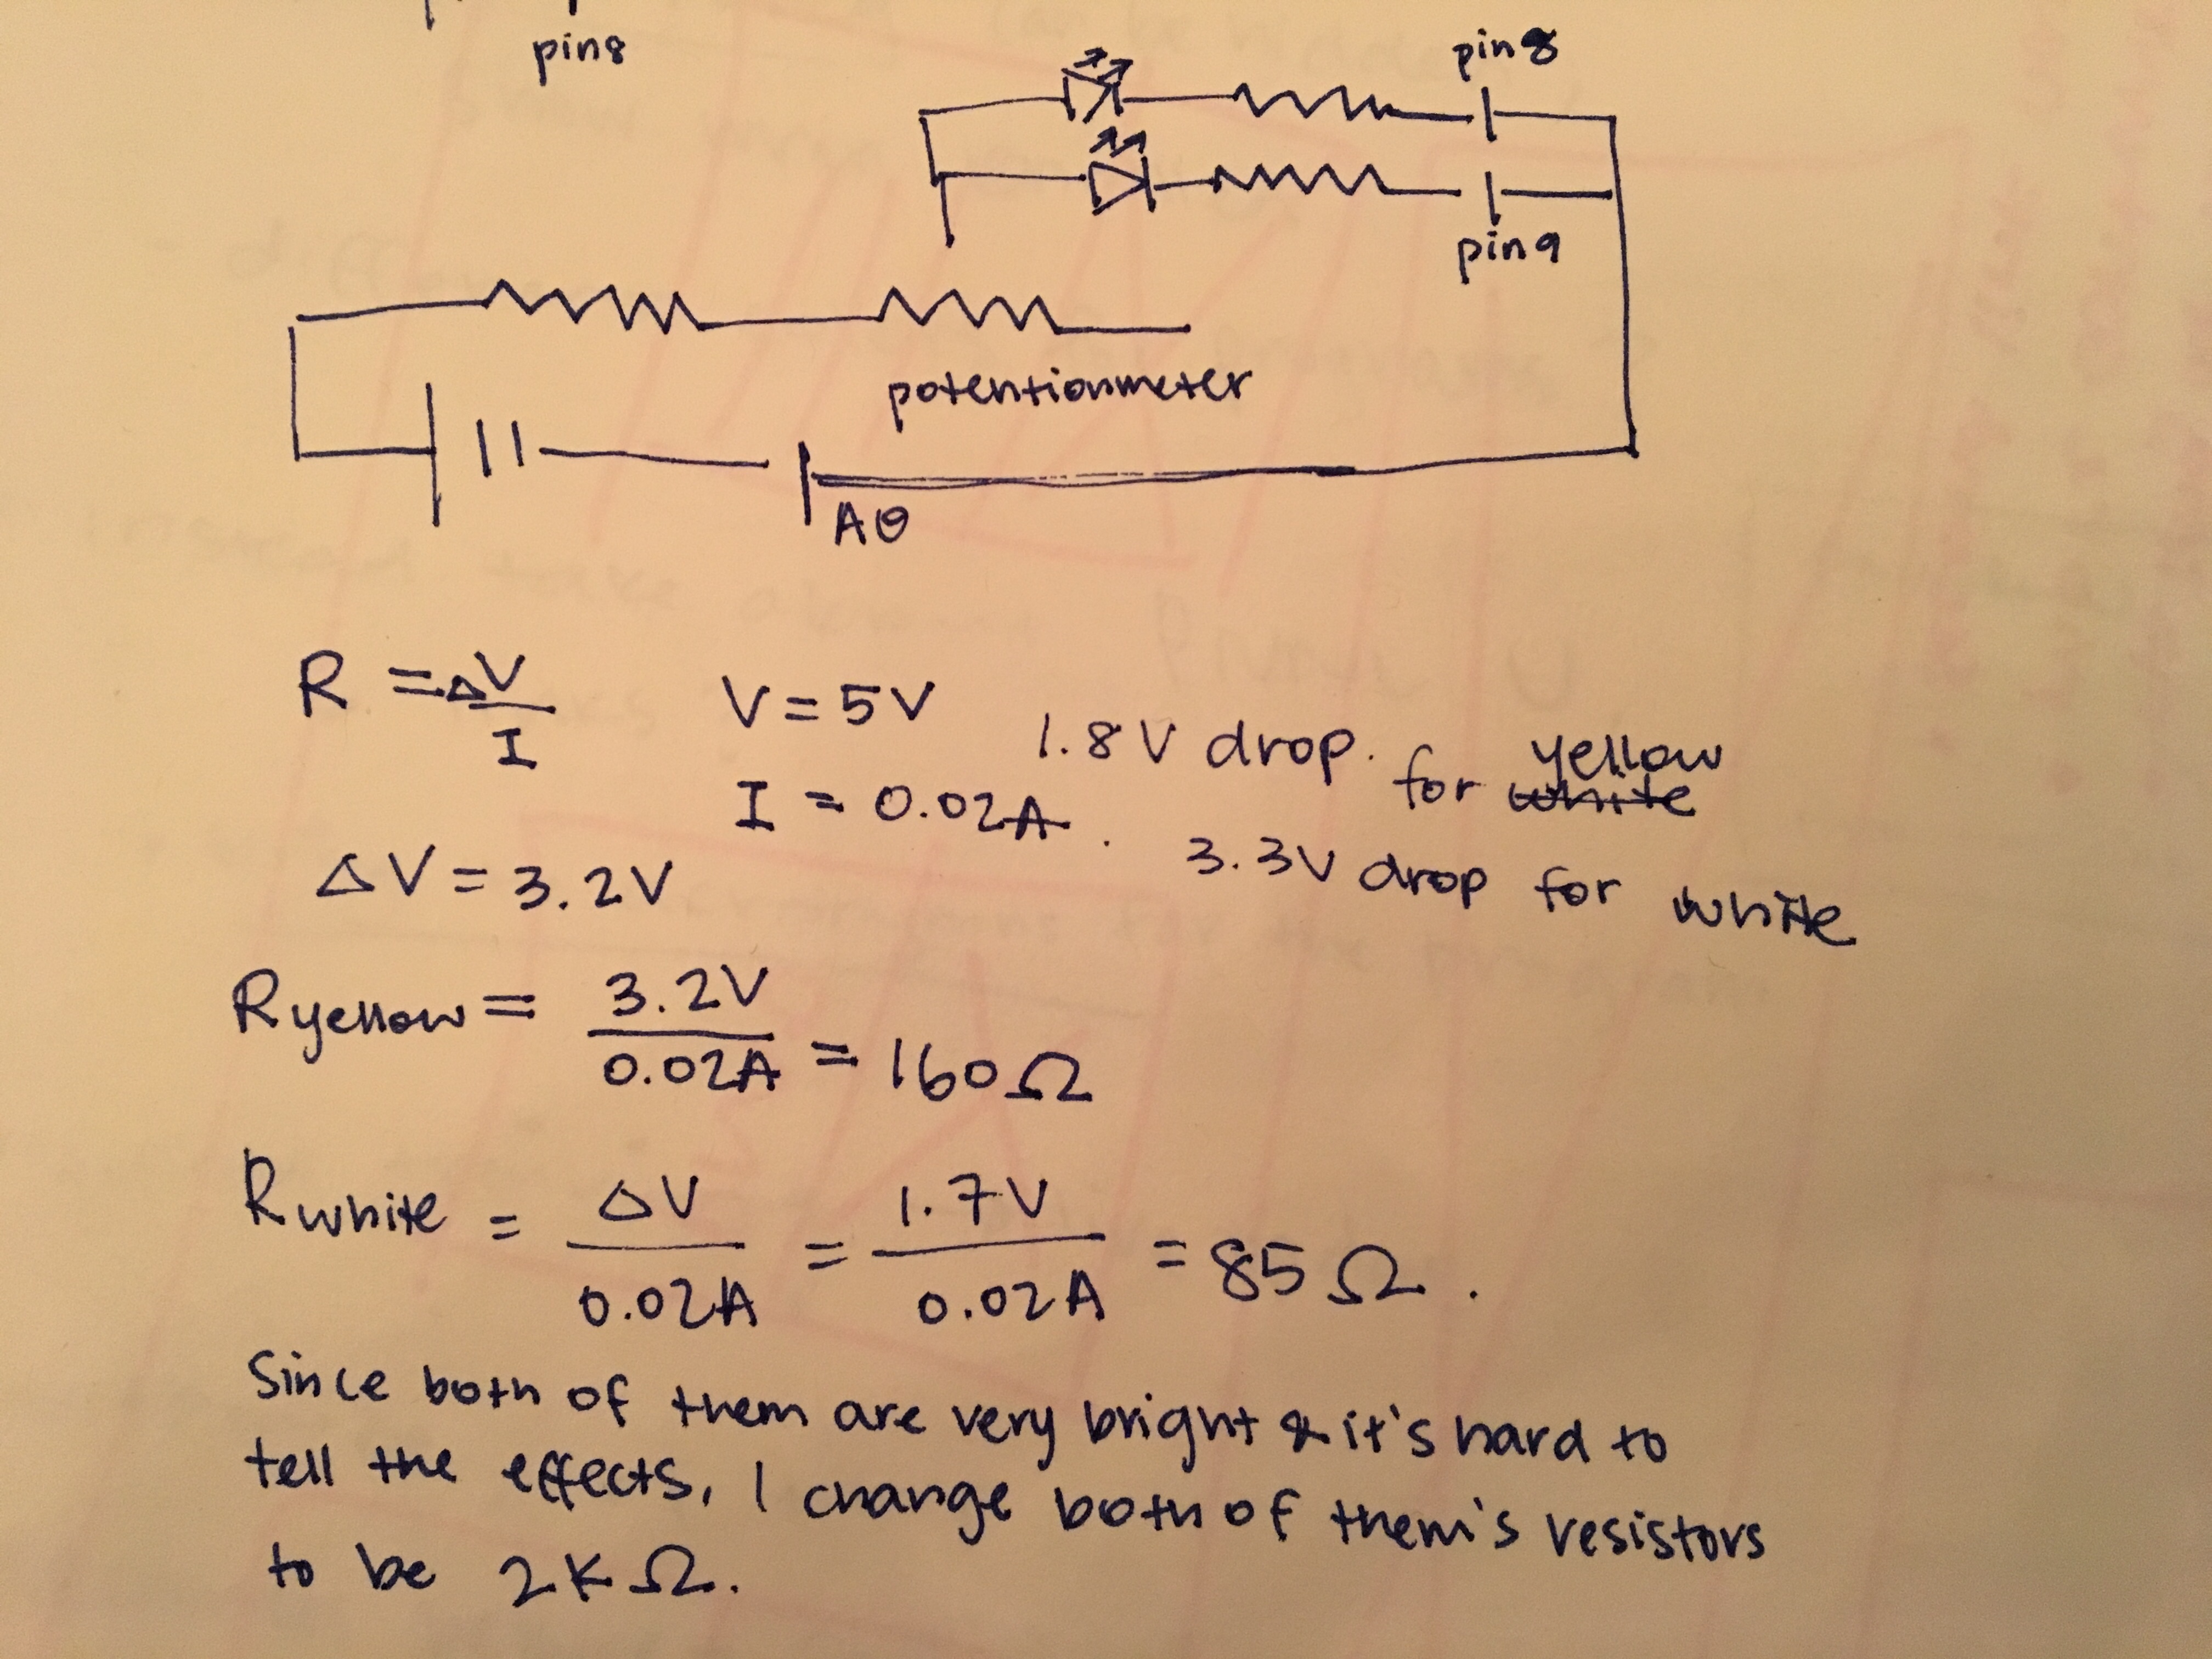 pin8
pin8
pin9
potentionmeter
A0
R = ΔV/I
V = 5V
1.8V drop. for yellow
white
I = 0.02A.
3.3V drop for white
ΔV = 3.2V
Ryellow = 3.2V/0.02A = 160Ω
Rwhite = ΔV/0.02A = 1.7V/0.02A = 85Ω.
Since both of them are very bright & it's hard to
tell the effects, I change both of them's resistors
to be 2KΩ.